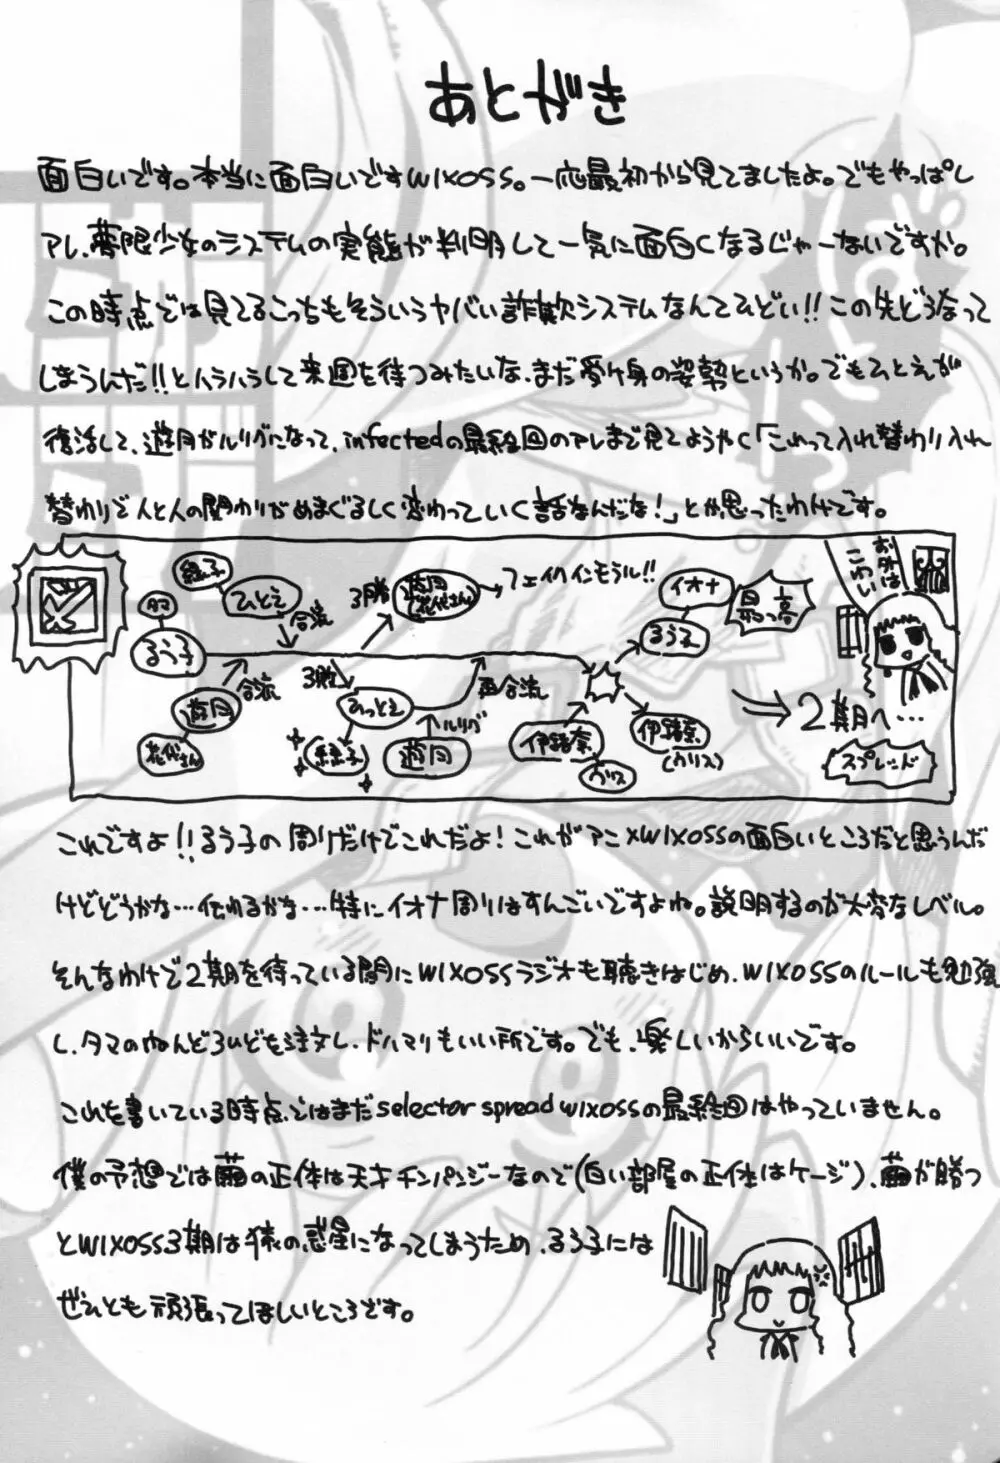 あとがき
面白いです。本当に面白いですWIXOSS。一応最初から見てましたよ。でもやっぱし
アレ、夢限少女のシステムの実態が判明して一気に面白くなるじゃーないですか。
この時点では見てるこっちもそういうヤバい詐欺システムなんてひどい!!この先どうなって
しまうんだ!!とハラハラして来週を待つみたいな、まだ受け身の姿勢というか。でもひとえが
復活して、遊月がルリグになって、infectedの最終回のアレまで見てようやく「これって入れ替わり入れ
替わりで人と人の関わりがめまぐるしく変わっていく話なんだな!」とか思ったわけです。
タマ
るう子
緑子
ひとえ
合流
遊月
花代さん
合流
3勝
遊月
(花代さん)
フェイクインモラル!!
3敗
ひっとえ
緑子
再合流
ルリグ
遊月
イオナ
るう子
最っ高
伊緒奈
ウリス
伊緒奈
(ウリス)
2期へ…
スプレッド
お外は
こわい
これですよ!!るう子の周りだけでこれだよ!これがアニメWIXOSSの面白いところだと思うんだ
けどどうかな…伝わるかな…特にイオナ周りはすんごいですよね。説明するのが大変なレベル。
そんなわけで2期を待っている間にWIXOSSラジオも聴きはじめ、WIXOSSのルールも勉強
し、タマのねんどろいどを注文し、ドハマリもいい所です。でも、楽しいからいいです。
これを書いている時点ではまだselector spread wixossの最終回はやっていません。
僕の予想では繭の正体は天才チンパンジーなので(白い部屋の正体はケージ)、繭が勝つ
とWIXOSS3期は猿の惑星になってしまうため、るう子には
ぜひとも頑張ってほしいところです。